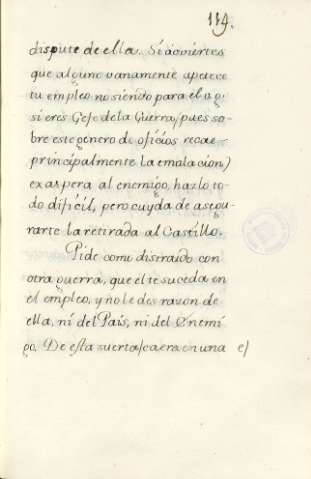 114.
dispute de ella. Si adviertes
que alguno vanamente apetece
tu empleo no siendo para el (y
si eres Gefe de la Guerra, pues so-
bre este genero de oficios recae
principalmente la emulacion)
exaspera al enemigo, hazlo to-
do dificil, pero cuyda de asegu-
rarte la retirada al Castillo.
Pide como distraido con
otra guerra, que el te suceda en
el empleo, y no le des razon de
ella, ni del País, ni del Enemi-
go. De esta suerte caera en una e/